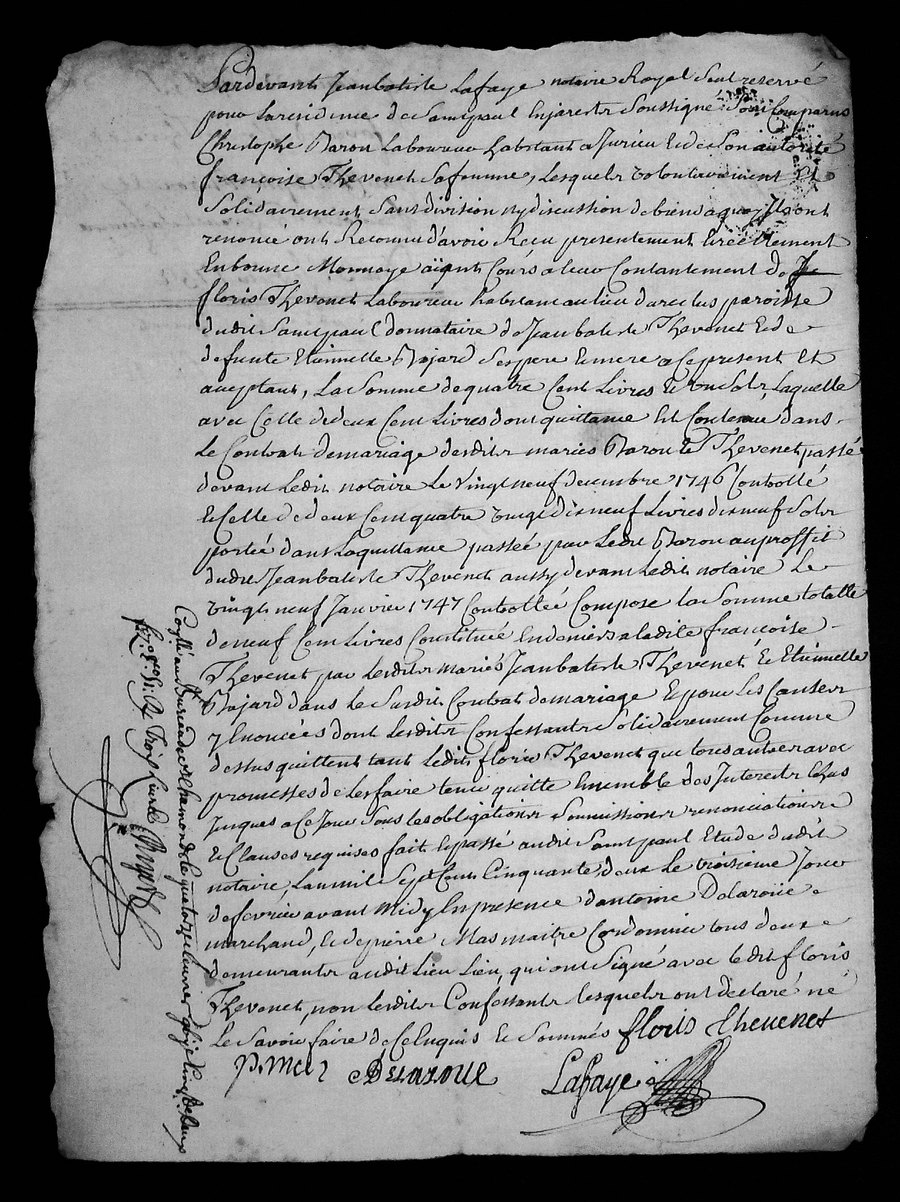 Pardevant Jeanbatiste Lafaye notaire Royal Seul reservé
pour Laresidence de Saintpaul Enjarest Soussigné Sont Comparus
Christophe Barou Laboureur habitant a Jurieu Et de Son autorité
françoise Thevenet Safemme, Lesquels volontairement Et
Solidairement Sans division ny discussion de biens aquoy Ils ont
renoncé ont Reconnu d'avoir Recu presentement Et reéllement
Enbonne Monnoye aÿant Cours a leur Contantement de
floris Thevenet Laboureur habitant au lieu darcelus paroisse
dudit Saintpaul donnataire de Jeanbatiste Thevenet Et de
defunte Etiennette Bajard Ses pere Et mere a Ce present Et
aceptant, La Somme de quatre Cent Livres Et un Sols, Laquelle
avec Celle de deux Cent Livres dont quittance Est Contenue dans
Le Contrat de mariage desdits mariés Barou Et Thevenet passé
devant Ledit notaire Le vingt neuf decembre 1746 Controllé
Et Celle de deux Cent quatre vingt dix neuf Livres dix neuf Sols
portée dans Laquittance passeé par Ledit Barou au proffit
dudit Jeanbatiste Thevenet aussy devant Ledit notaire Le
vingt neuf Janvier 1747 Controlleé Compose la Somme totalle
de neuf Cent Livres Constituée En deniers a ladite françoise
Thevenet par Lesdits mariés Jeanbatiste Thevenet Et Etiennette
Bajard dans Le Susdit Contrat de mariage Et pour Les Causes
y Enoncées dont Lesdits Confessants Solidairement Comme
dessus quittent tant Ledit floris Thevenet que tous autres avec
promesses de Les faire tenir quitte Ensemble des Interests
Jusques a Ce Jour Sous Les obligations Soumissions renonciations
Et Clauses requises fait Et passé audit Saint paul Etude dudit
notaire, Lan mil Sept Cent Cinquante deux Le troisieme Jour
de fevrier avant Midy En presence d'antoine Delaroüe
marchand, Et de pierre Mas maitre Cordonnier tous deux
demeurants audit Lieu Lieu, qui ont Signé avec Ledit floris
Thevenet, non Lesdits Confessants Lesquels ont declaré né
Le Savoir faire de Ce Enquis Et Sommés floris thevenet
p. mas Delaroue
Lafaye
Controllé au Bureau de St Chamond Le quatorze fevrier